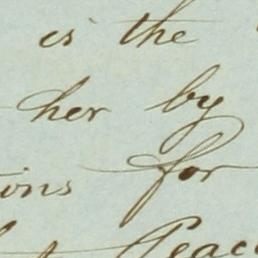 is the
her by
ons for
Peac